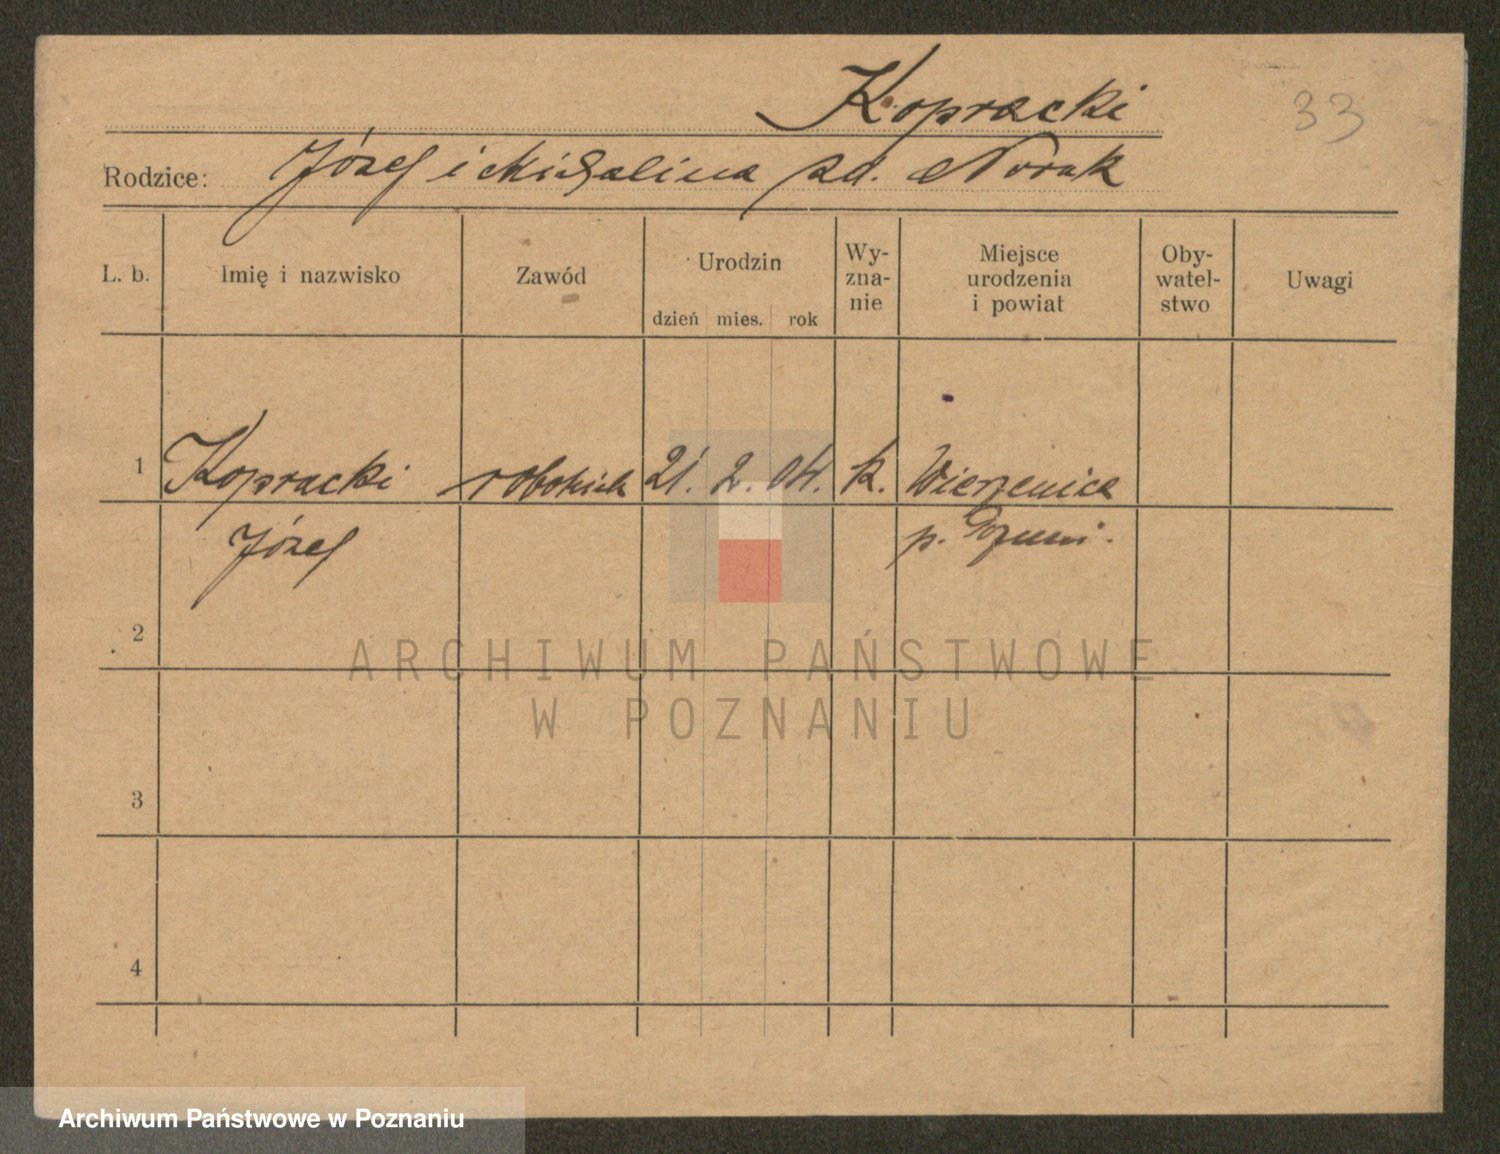 Kopracki
33
Rodzice: Józef i Michalina zd. Nowak
L. b. Imię i nazwisko Zawód Urodzin dzień mies. rok Wy-zna-nie Miejsce urodzenia i powiat Oby-watel-stwo Uwagi
1 Kopracki robotnik 21. 2. 04. k. Wierzenica
Józef p. Pozn.
2
ARCHIWUM PAŃSTWOWE
W POZNANIU
3
4
Archiwum Państwowe w Poznaniu